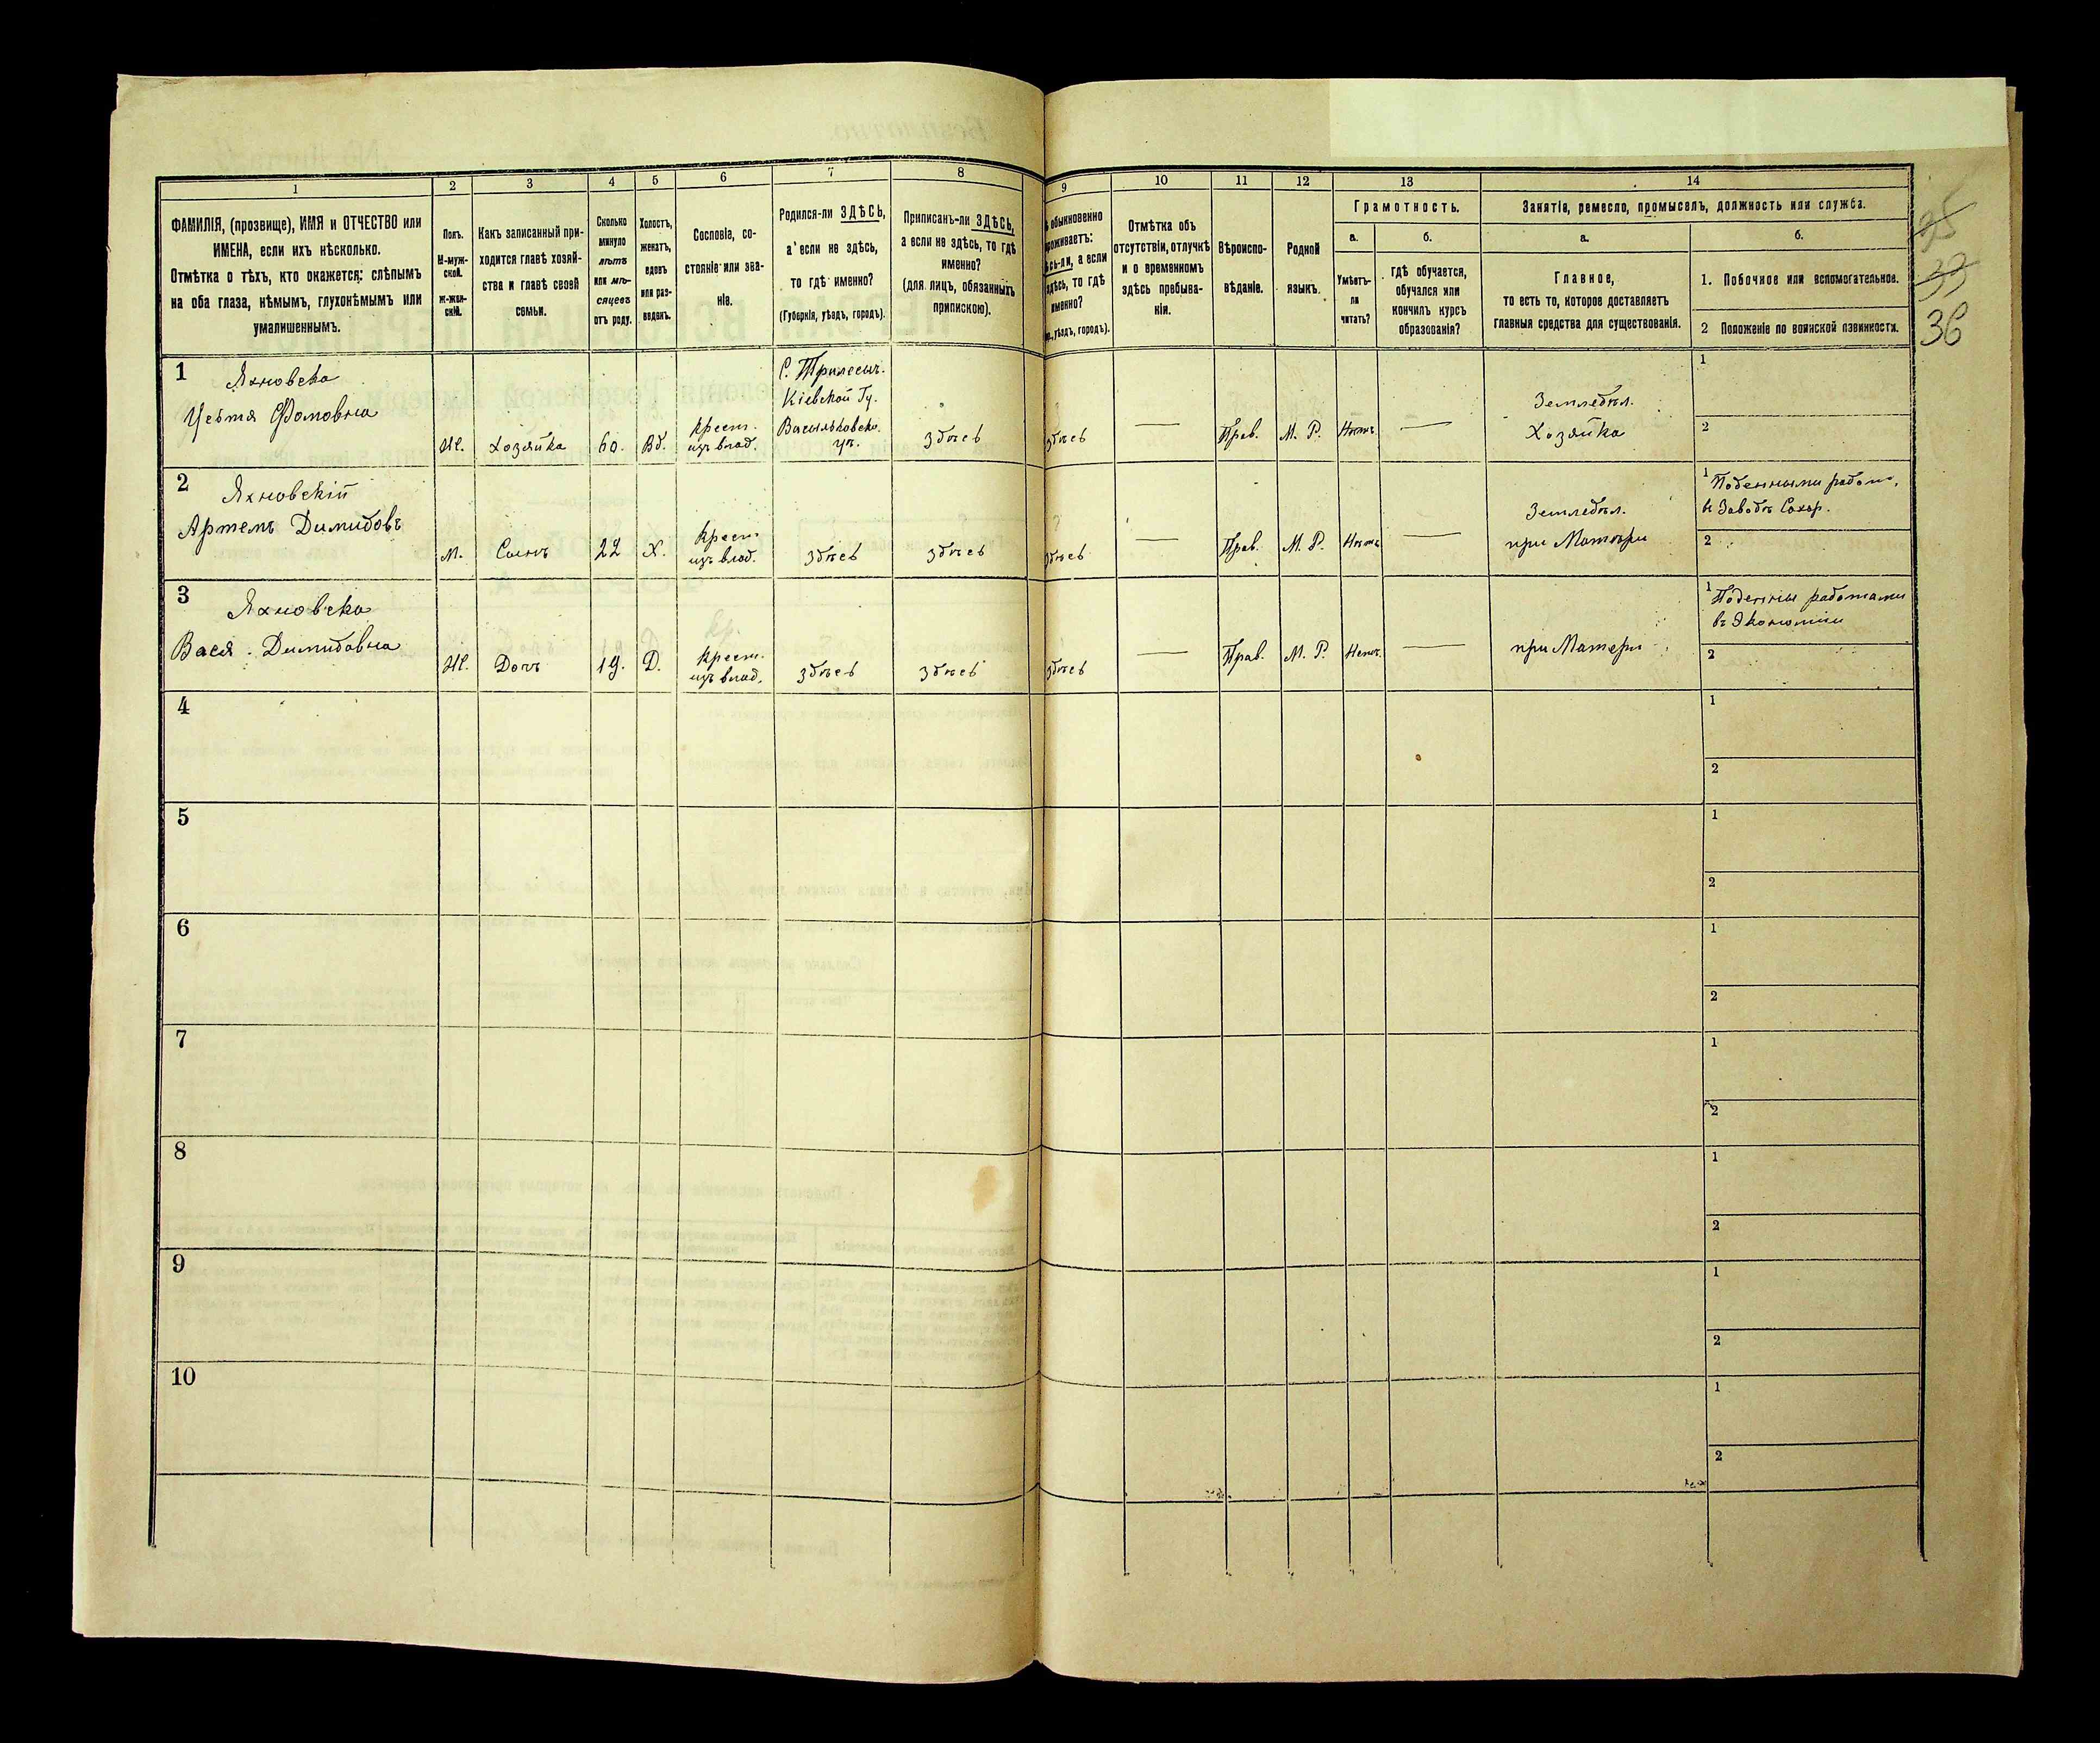 1 2 3 4 5 6 7 8 9 10 11 12 13 14
ФАМИЛІЯ, (прозвище), ИМЯ и ОТЧЕСТВО или
ИМЕНА, если ихъ нѣсколько.
Отмѣтка о тѣхъ, кто окажется: слѣпымъ
на оба глаза, нѣмымъ, глухонѣмымъ или
умалишеннымъ.
Полъ.
М-муж-
ской.
Ж-жен-
скій.
Какъ записанный при-
ходится главѣ хозяй-
ства и главѣ своей
семьи.
Сколько
минуло
лѣтъ
или мѣ-
сяцевъ
отъ роду.
Холостъ,
женатъ,
вдовъ
или раз-
веденъ.
Сословіе, со-
стояніе или зва-
ніе.
Родился-ли ЗДѢСЬ,
а если не здѣсь,
то гдѣ именно?
(Губернія, уѣздъ, городъ).
Приписанъ-ли ЗДѢСЬ,
а если не здѣсь, то гдѣ
именно?
(для лицъ, обязанныхъ
припискою).
обыкновенно
роживаетъ:
сь-ли, а если
здѣсь, то гдѣ
именно?
уѣздъ, городъ).
Отмѣтка объ
отсутствіи, отлучкѣ
и о временномъ
здѣсь пребыва-
ніи.
Вѣроиспо-
вѣданіе.
Родной
языкъ.
Грамотность.
а. б.
Умѣетъ-
ли
читать?
гдѣ обучается,
обучался или
кончилъ курсъ
образованія?
Занятіе, ремесло, промыселъ, должность или служба.
а. б.
Главное,
то есть то, которое доставляетъ
главныя средства для существованія.
1. Побочное или вспомогательное.
2 Положеніе по воинской повинности.
35
39
36
1
Яхновска
Фомовна
Ж. Хозяйка 60. Вд.
крест.
изъ влад.
С. Трилесы.
Кіевской Гу.
Васильковско.
уѣ.
здѣсь
здѣсь
Прав. М. Р. Нѣтъ —
Земледѣл.
Хозяйка
1
2
2
Яхновскій
Артемъ Димидовъ
М. Сынъ 22 Х.
крест.
изъ влад.
здѣсь
здѣсь
здѣсь
— Прав. М. Р. Нѣтъ —
Земледѣл.
при Матери
1 Поденными работ.
въ Заводѣ Сахар.
2
3
Яхновска
Вася. Димидовна
Ж. Дочь 19. Д.
кр.
крест.
изъ влад.
здѣсь
здѣсь
здѣсь
— Прав. М. Р. Нетъ. —
при Матери
1 Поденны работами
въ Экономіи
2
4
1
2
5
1
2
6
1
2
7
1
2
8
1
2
9
1
2
10
1
2